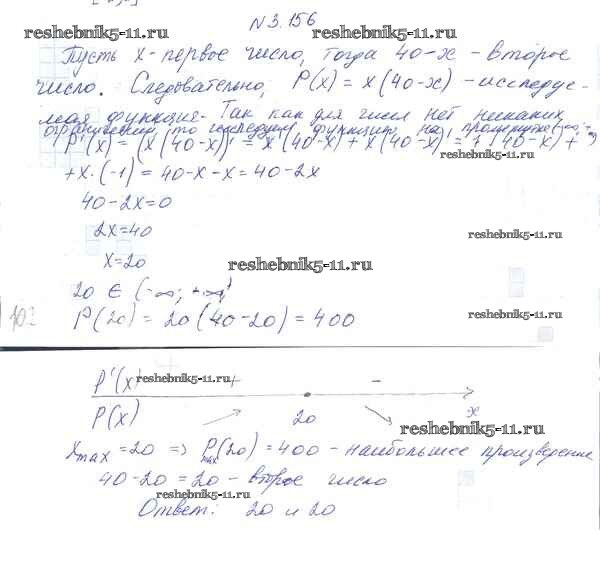 N 3.156
reshebnik5-11.ru reshebnik5-11.ru
Пусть x - первое число, тогда 40-x - второе
число. Следовательно, P(x) = x(40-x) - исследуе-
мая функция. Так как для чисел нет никаких
ограничений, то исследуем функцию на промежутке (-∞; +∞)
P'(x) = (x(40-x))' = x'(40-x) + x(40-x)' = 1(40-x) +
reshebnik5-11.ru
+x·(-1) = 40-x-x = 40-2x
40-2x=0
2x=40
reshebnik5-11.ru
x=20
reshebnik5-11.ru
20 ∈ (-∞; +∞)
P(20) = 20(40-20) = 400
reshebnik5-11.ru
P'(x) + -
reshebnik5-11.ru
P(x) 20 x
reshebnik5-11.ru
x max = 20 => P max (20) = 400 - наибольшее произведение
40-20 = 20 - второе число
reshebnik5-11.ru
Ответ: 20 и 20